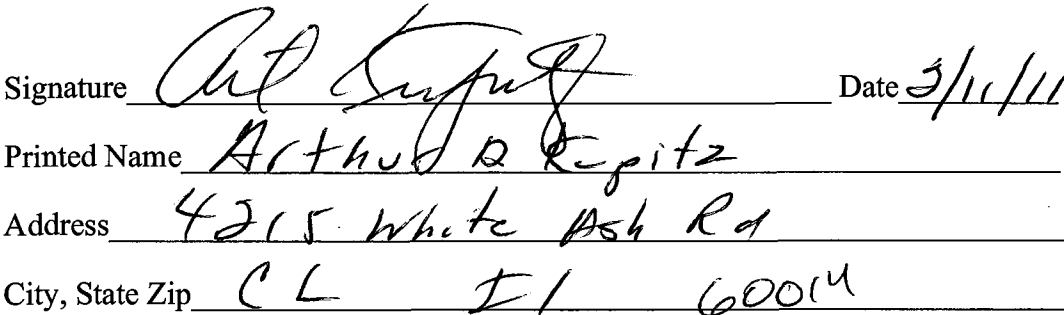 Signature Art Kupitz Date 3/11/11
Printed Name Arthur D Kupitz
Address 4215 White Ash Rd
City, State Zip CL Il 60014